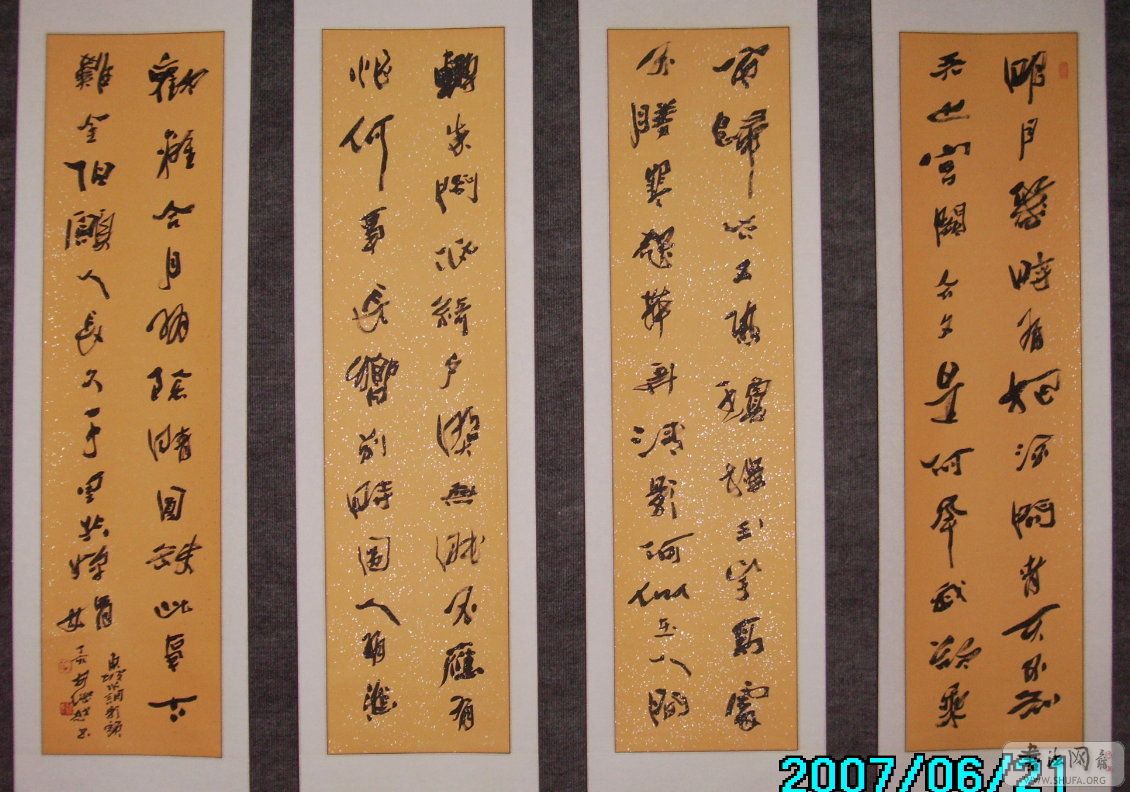 明月幾時有把酒問青天不知
天上宮闕今夕是何年我欲乘
風歸去又恐瓊樓玉宇高處
不勝寒起舞弄清影何似在人間
轉朱閣低綺戶照無眠不應有
恨何事長嚮別時圓人有悲
歡離合月有陰晴圓缺此事古
難全但願人長久千里共嬋娟
東坡水調歌頭
丁亥
2007/06/21
书法网
WWW.SHUFA.ORG